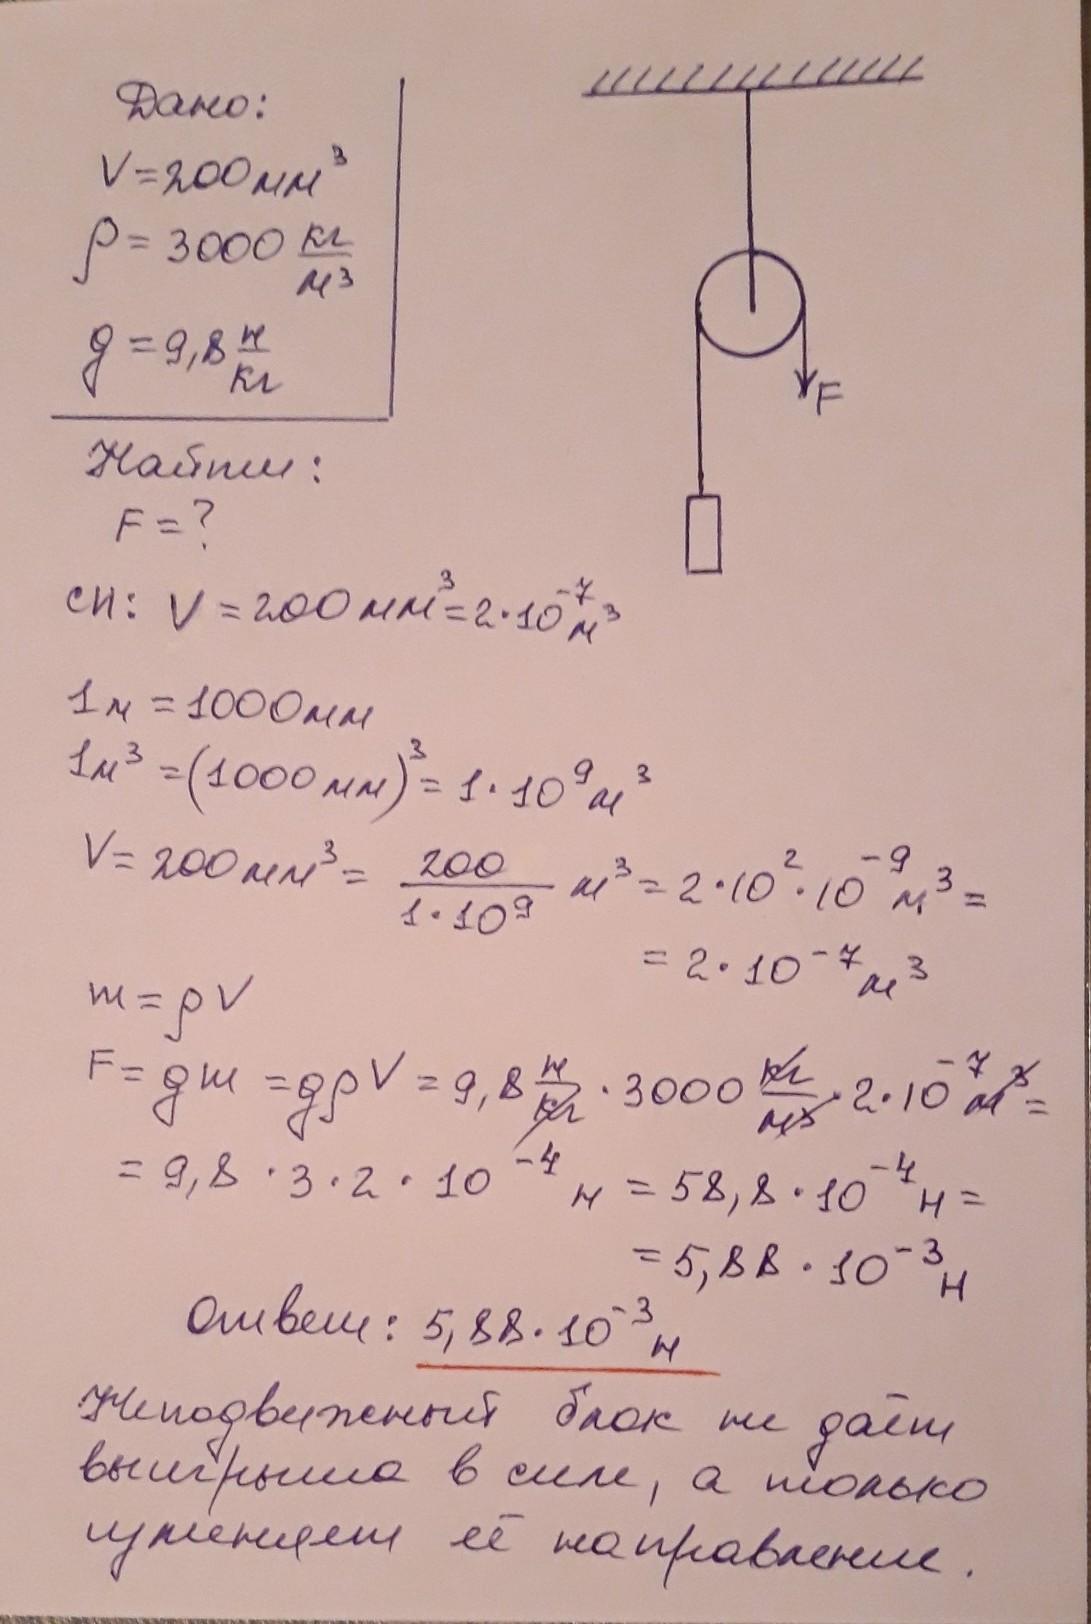 Дано:
V=200мм³
ρ=3000 кг/м³
g=9,8 н/кг
F
Найти:
F=?
СИ: V=200мм³=2·10⁻⁷м³
1м=1000мм
1м³=(1000мм)³=1·10⁹м³
V=200мм³=200/1·10⁹ м³=2·10²·10⁻⁹м³=
=2·10⁻⁷м³
m=ρV
F=gm=gρV=9,8 н/кг·3000 кг/м³·2·10⁻⁷м³=
=9,8·3·2·10⁻⁴н=58,8·10⁻⁴н=
=5,88·10⁻³н
Ответ: 5,88·10⁻³н
Неподвижный блок не даёт
выигрыша в силе, а только
изменяет её направление.